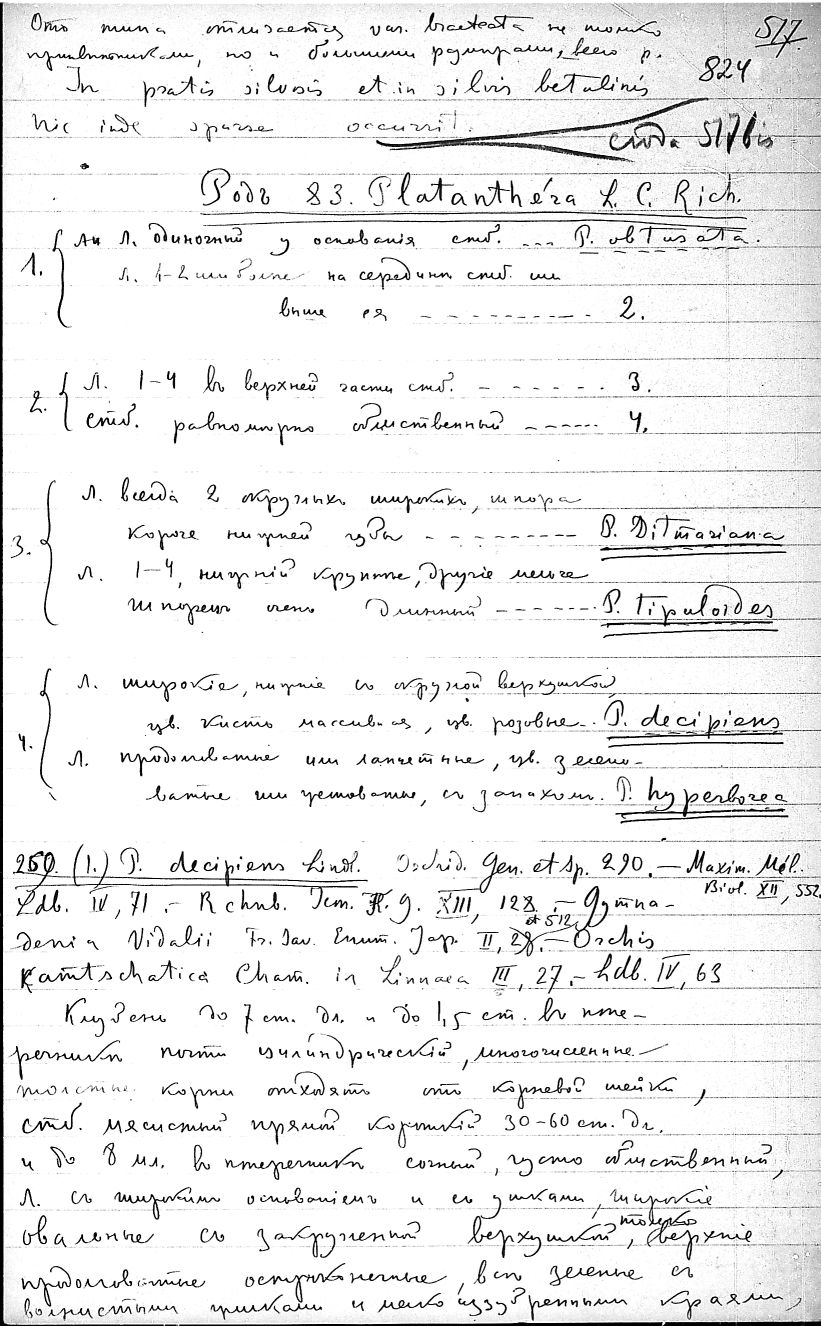 Отъ типа отличается var. bracteata не только
прицвѣтниками, но и большими размѣрами, всего р.
517.
824
In pratis silvosis et in silvis betulinis
hic inde sparse occurrit.
сюда 517 bis
Родъ 83. Platanthéra L. C. Rich.
1. Л. одиночный у основанія стб. ... P. obtusata.
Л. 1-2 или болѣе на серединѣ стб. или
выше ея - - - - - - - 2.
2. Л. 1-4 въ верхней части стб. - - - - - - 3.
Стб. равномѣрно облиственный - - - - - 4.
3. Л. всегда 2 округлыхъ широкихъ, шпора
короче нижней губы - - - - - - - - P. Ditmariana
Л. 1-4, нижній крупнѣе, другіе мельче
шпорецъ очень длинный - - - - - - P. tipuloides
4. Л. широкіе, нижніе съ округлой верхушкой,
цв. кисть массивная, цв. розовые.. P. decipiens
Л. продолговатые или ланцетные, цв. зелено-
ватые или желтоватые, съ запахомъ. P. hyperborea
259. (1.) P. decipiens Lindl. Orchid. Gen. et Sp. 290. — Maxim. Mél.
Biol. XII, 552.
Ldb. IV, 71. - Rchnb. Icm. Fl. g. XIII, 128. - Gymna-
et 512
denia Vidalii Fr. Sav. Enum. Jap. II, 28. - Orchis
Kamtschatica Cham. in Linnaea III, 27. - Ldb. IV, 63
Клубень до 7 ст. дл. и до 1,5 ст. въ попе-
речникѣ почти цилиндрическій, многочисленные
толстые корни отходятъ отъ корневой шейки,
стб. мясистый прямой короткій 30-60 ст. дл.
и до 8 мл. въ поперечникѣ сочный, густо облиственный,
Л. съ широкимъ основаніемъ и съ ушками, широкіе
овальные съ закругленной верхушкой, только верхніе
продолговатые остроконечные, всѣ зеленые съ
волнистыми и мелко зазубренными краями,